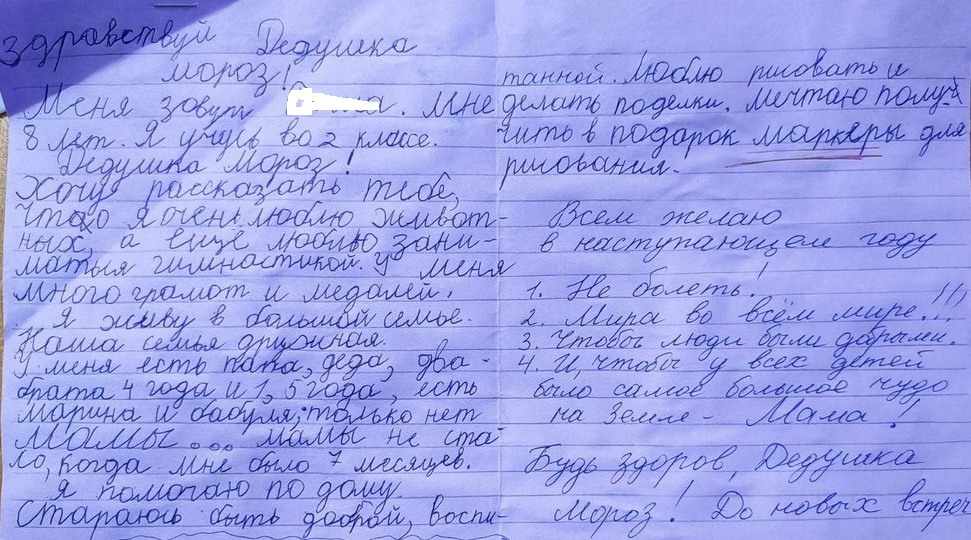 Здравствуй Дедушка
Мороз!
Меня зовут . Мне
8 лет. Я учусь во 2 классе.
Дедушка Мороз!
Хочу рассказать тебе,
что я очень люблю живот-
ных, а ещё люблю зани-
маться гимнастикой. У меня
много грамот и медалей.
Я живу в большой семье.
Наша семья дружная.
У меня есть папа, деда, два
брата 4 года и 1,5 года, есть
Марина и бабуля, только нет
мамы... мамы не ста-
ло, когда мне было 7 месяцев.
Я помогаю по дому.
Стараюсь быть доброй, воспи-
танной. Люблю рисовать и
делать поделки. Мечтаю полу-
чить в подарок маркеры для
рисования.
Всем желаю
в наступающем году
1. Не болеть!
2. Мира во всём мире!!!
3. Чтобы люди были добрыми.
4. И, чтобы у всех детей
было самое большое чудо
на Земле - Мама!
Будь здоров, Дедушка
Мороз! До новых встреч